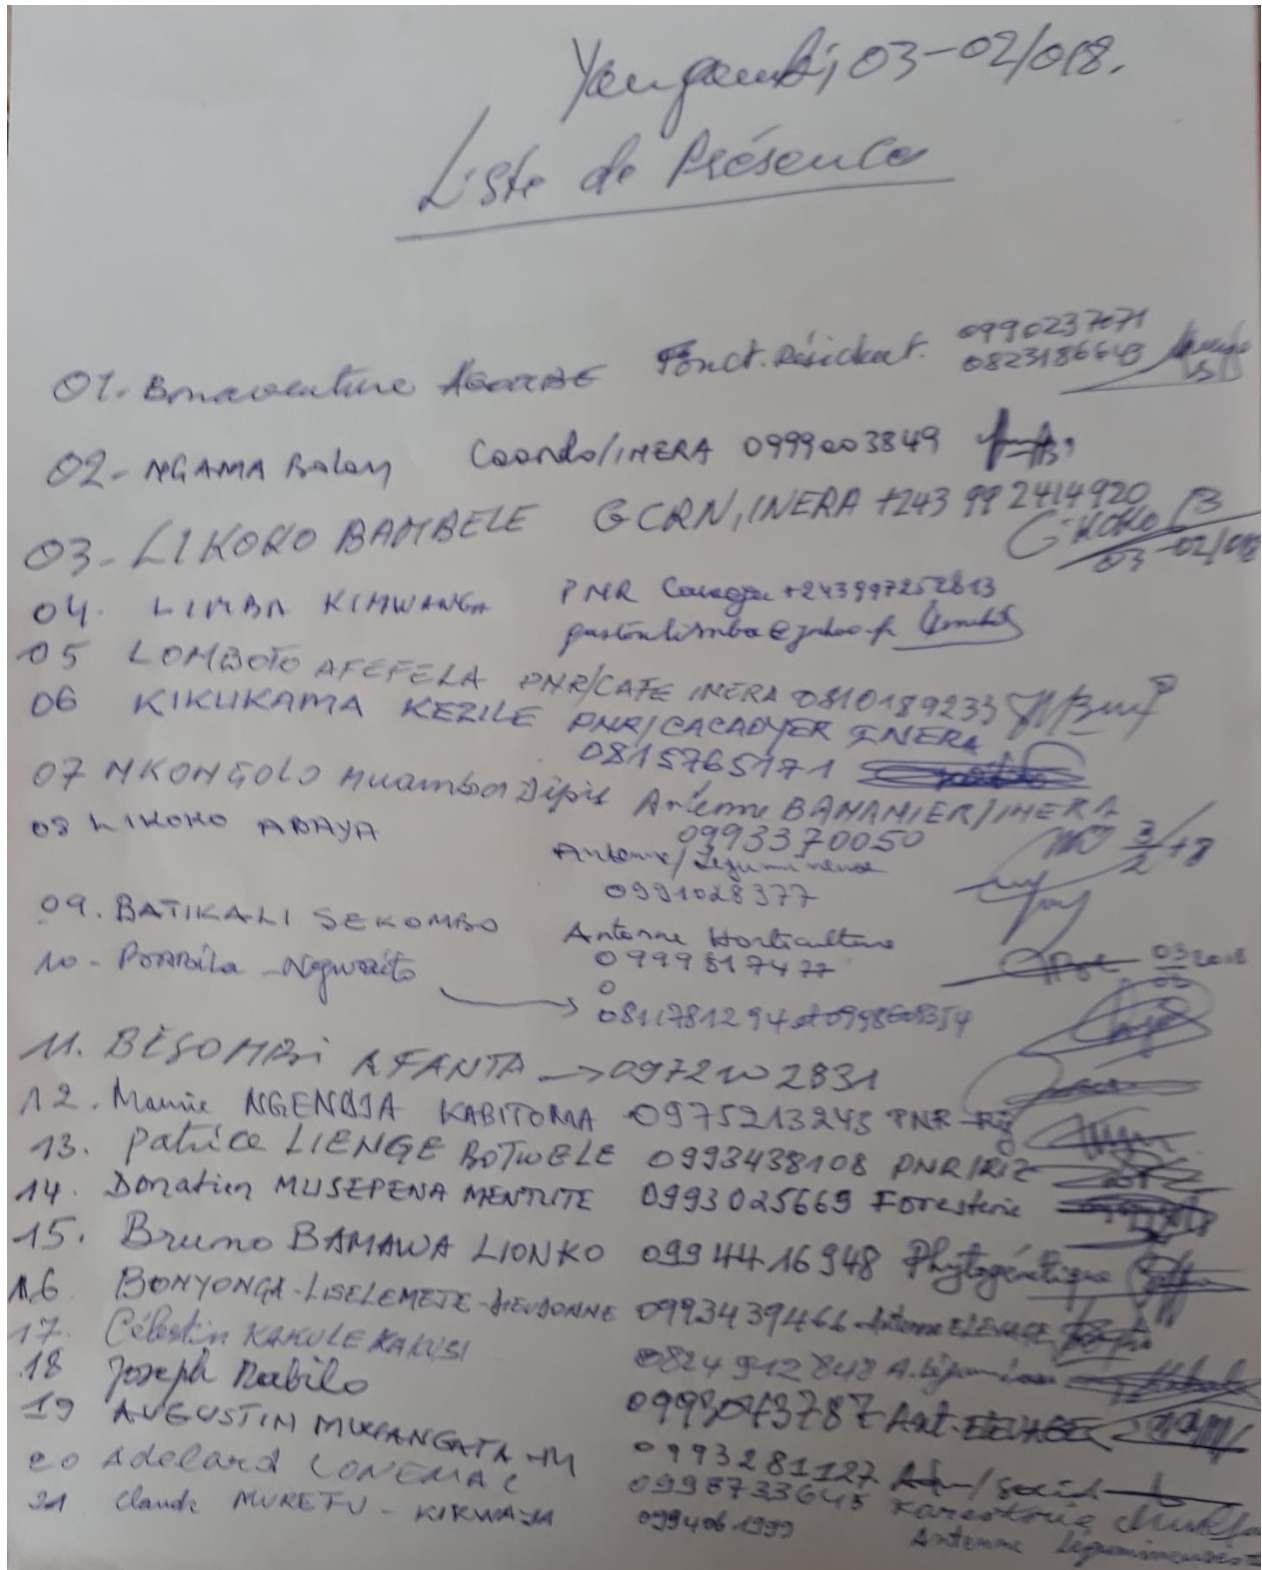 Yangambi, 03-02/018.
Liste de Présence
01. Bonaventure Fonct. Résident. 0990237071
0823186643
02- NGAMA Bolay Coordo/INERA 0999003849
03- LIKOKO BAMBELE GCRN, INERA +243 992414920
03-02/018
04. LIMBA KIMWANGA PNR +243997252813
05 LOMBOTO AFEFELA PNR/CAFE INERA 0810189233
06 KIKUKAMA KEZILE PNR/CACAOYER INERA
0815765171
07 NKONGOLO Muamba Dipis Antenne BANANIER/INERA
0993370050
08 LIKOKO ABAYA Antenne/Légumineuse
0991028377
09. BATIKALI SEKOMBO Antenne Horticulture
0999817477
10 -
11. BESOMBI AFANTA → 0972102831
12. Mamie NGENDJA KABITOMA 0975213243 PNR-Riz
13. Patrice LIENGE BOTWELE 0993438108 PNR/RIZ
14. Donatien MUSEPENA MENTUTE 0993025669 Foresterie
15. Bruno BAMAWA LIONKO 0994416948 Phytogénétique
16 BONYONGA-LISELEMETE-DIEUDONNE 0993439466 Antenne ELEVAGE
17. Célestin KAKULE KAKUSI 0824912848
18 Joseph Mabilo 0993043787 Ant.ELEVAGE
19 AUGUSTIN MUKANGATA-M 0993281127
20 Adelard LONEMA C 0998733645 Foresterie
21 Claude MURETU - KIKWAYA 0994061999
Antenne